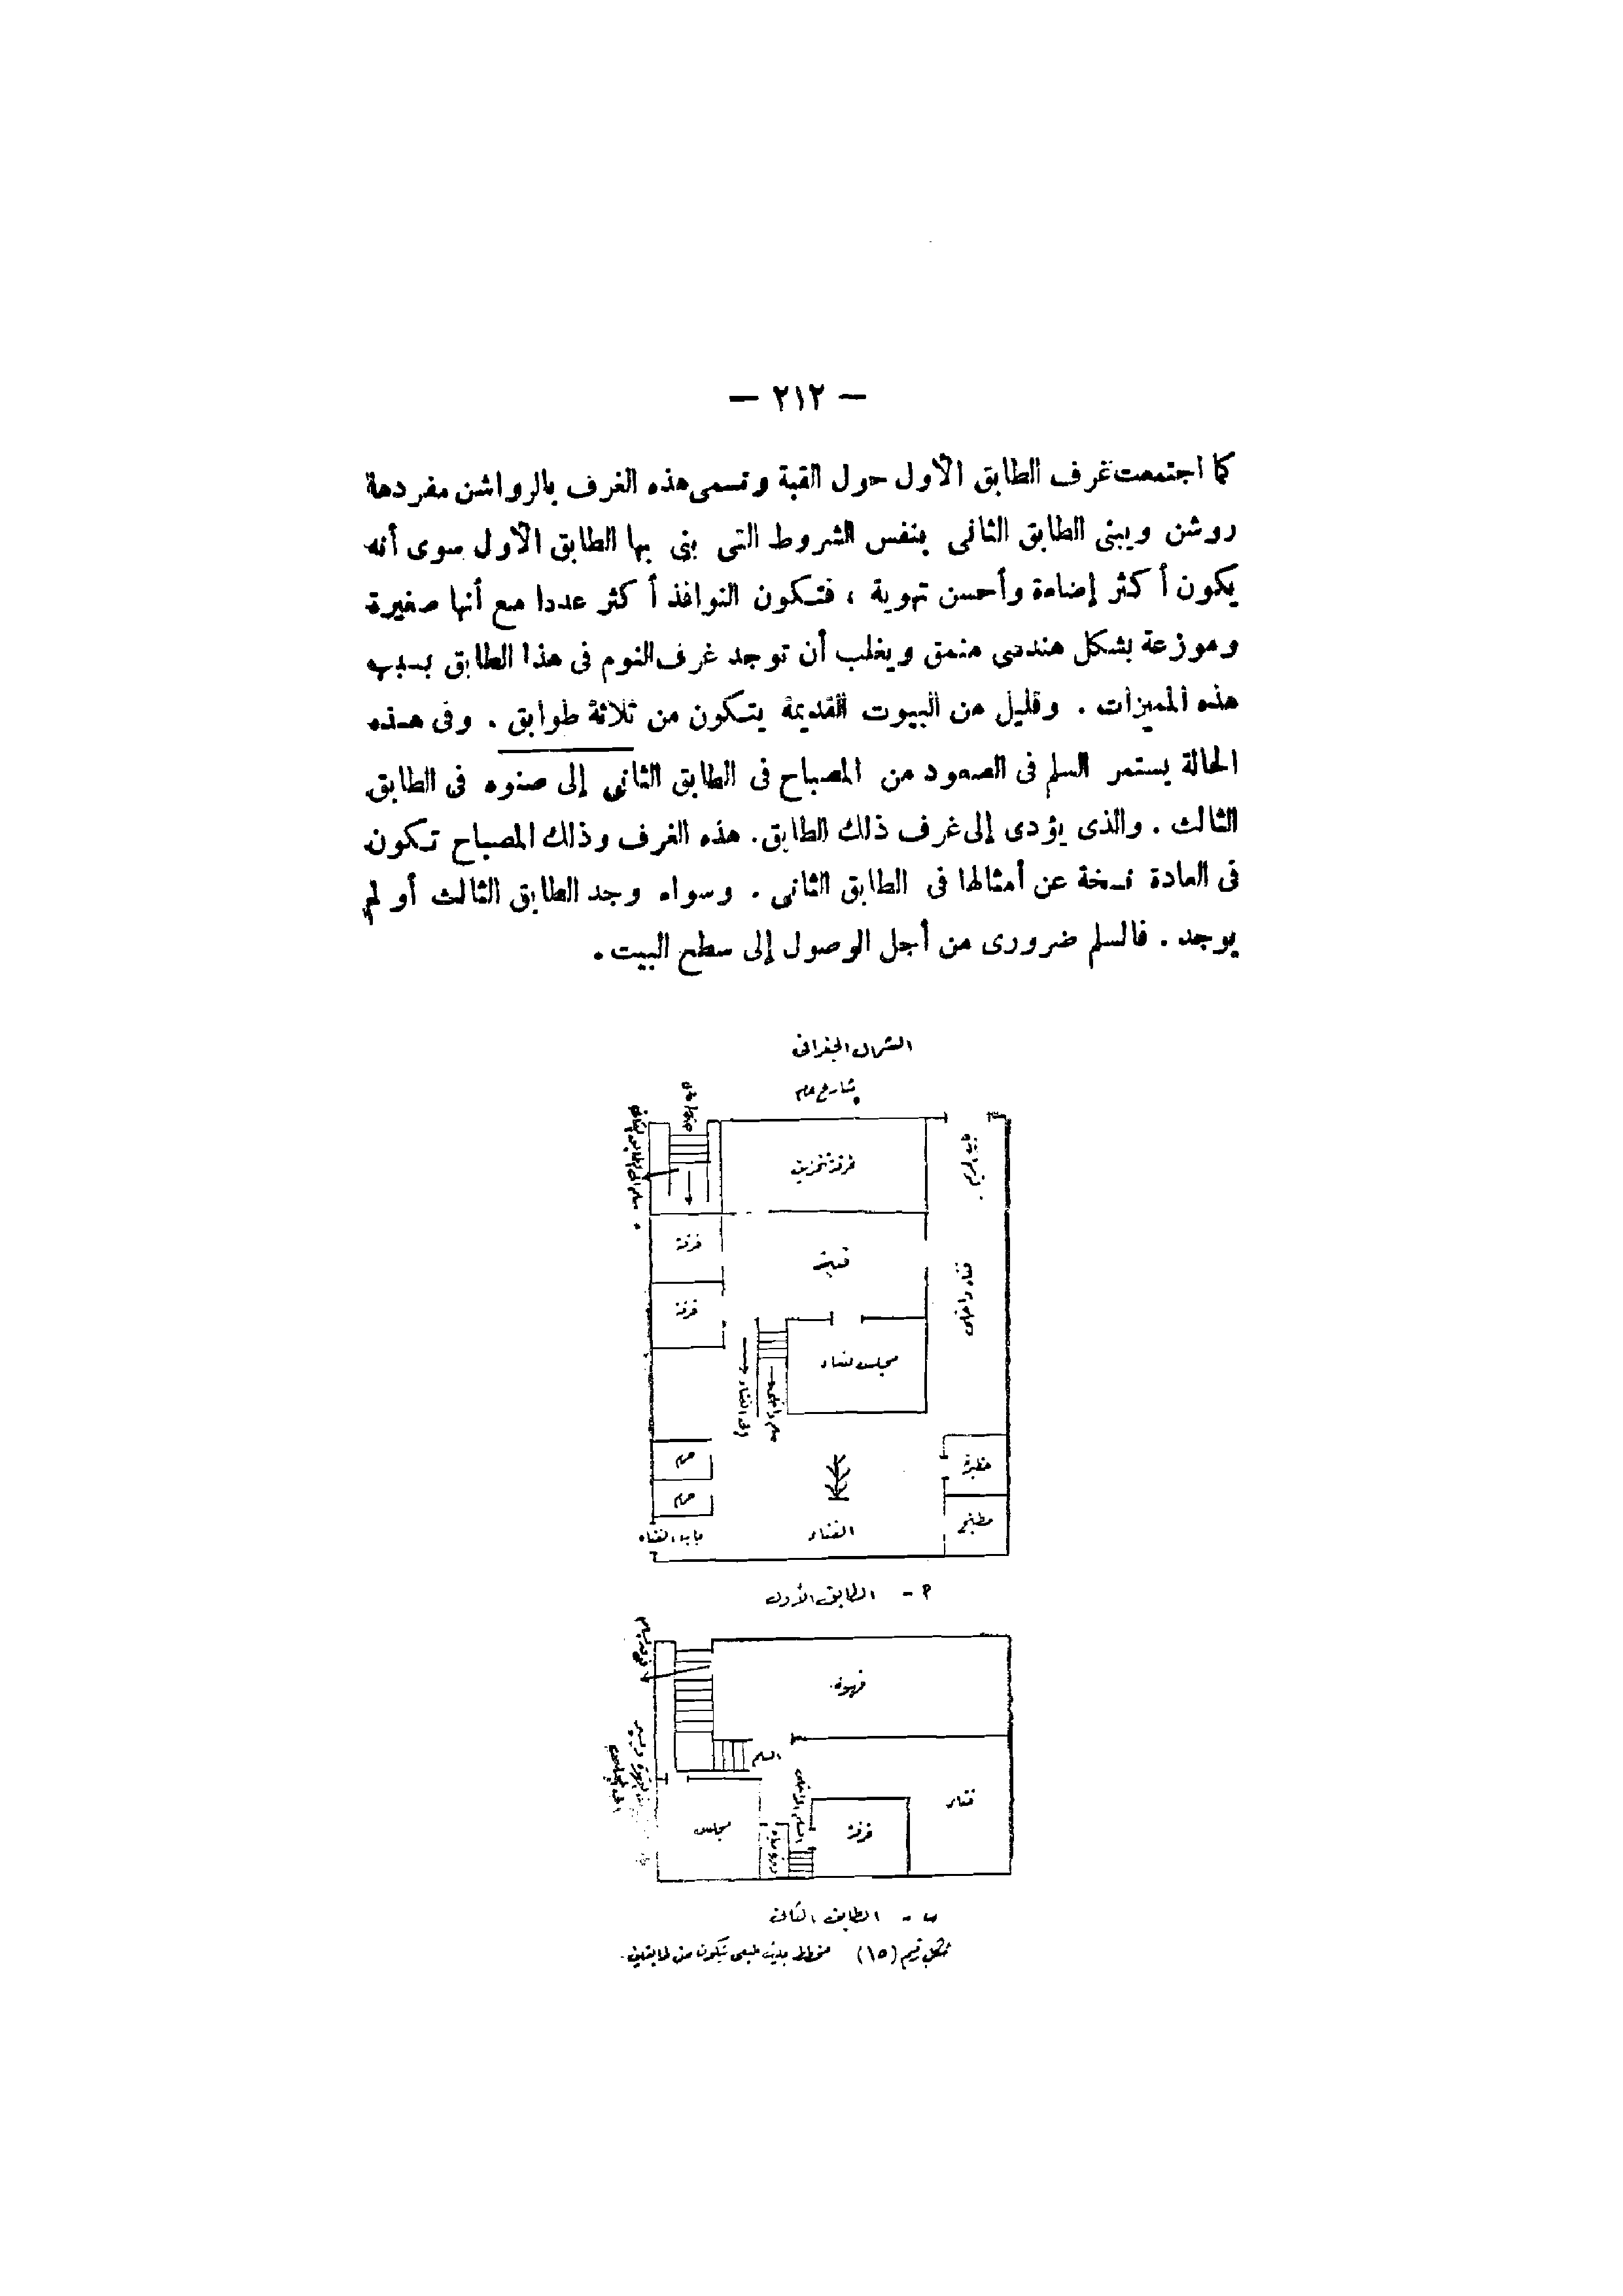 — ٢١٢ —
كما اجتمعت غرف الطابق الأول حول القبة وتسمى هذه الغرف بالرواشن مفردها
روشن ويبنى الطابق الثانى بنفس الشروط التى بنى بها الطابق الأول سوى أنه
يكون أكثر إضاءة وأحسن تهوية ، فتكون النوافذ أكثر عددا مع أنها صغيرة
وموزعة بشكل هندسى منمق ويغلب أن توجد غرف النوم فى هذا الطابق بسبب
هذه المميزات . وقليل من البيوت القديمة يتكون من ثلاثة طوابق . وفى هذه
الحالة يستمر السلم فى الصعود من المصباح فى الطابق الثانى إلى صنوه فى الطابق
الثالث . والذى يؤدى إلى غرف ذلك الطابق. هذه الغرف وذلك المصباح تكون
فى العادة نسخة عن أمثالها فى الطابق الثانى . وسواء وجد الطابق الثالث أو لم
يوجد . فالسلم ضرورى من أجل الوصول إلى سطح البيت .
الشمال الجغرافى
شارع عام
سلم الى الطابق الثانى
غرفة تخزين
غرفة
قبة
فناء داخلى
غرفة
مجلس نساء
سلم داخلى
الى الفناء
حمام
حظيرة
حمام
مطبخ
باب الفناء
الفناء
أ - الطابق الأول
قهوة
السلم
السلم الداخلى
فناء
مجلس
دورة مياه
غرفة
ب - الطابق الثانى
شكل رقم (١٥) مخطط بيت طينى يتكون من طابقين .